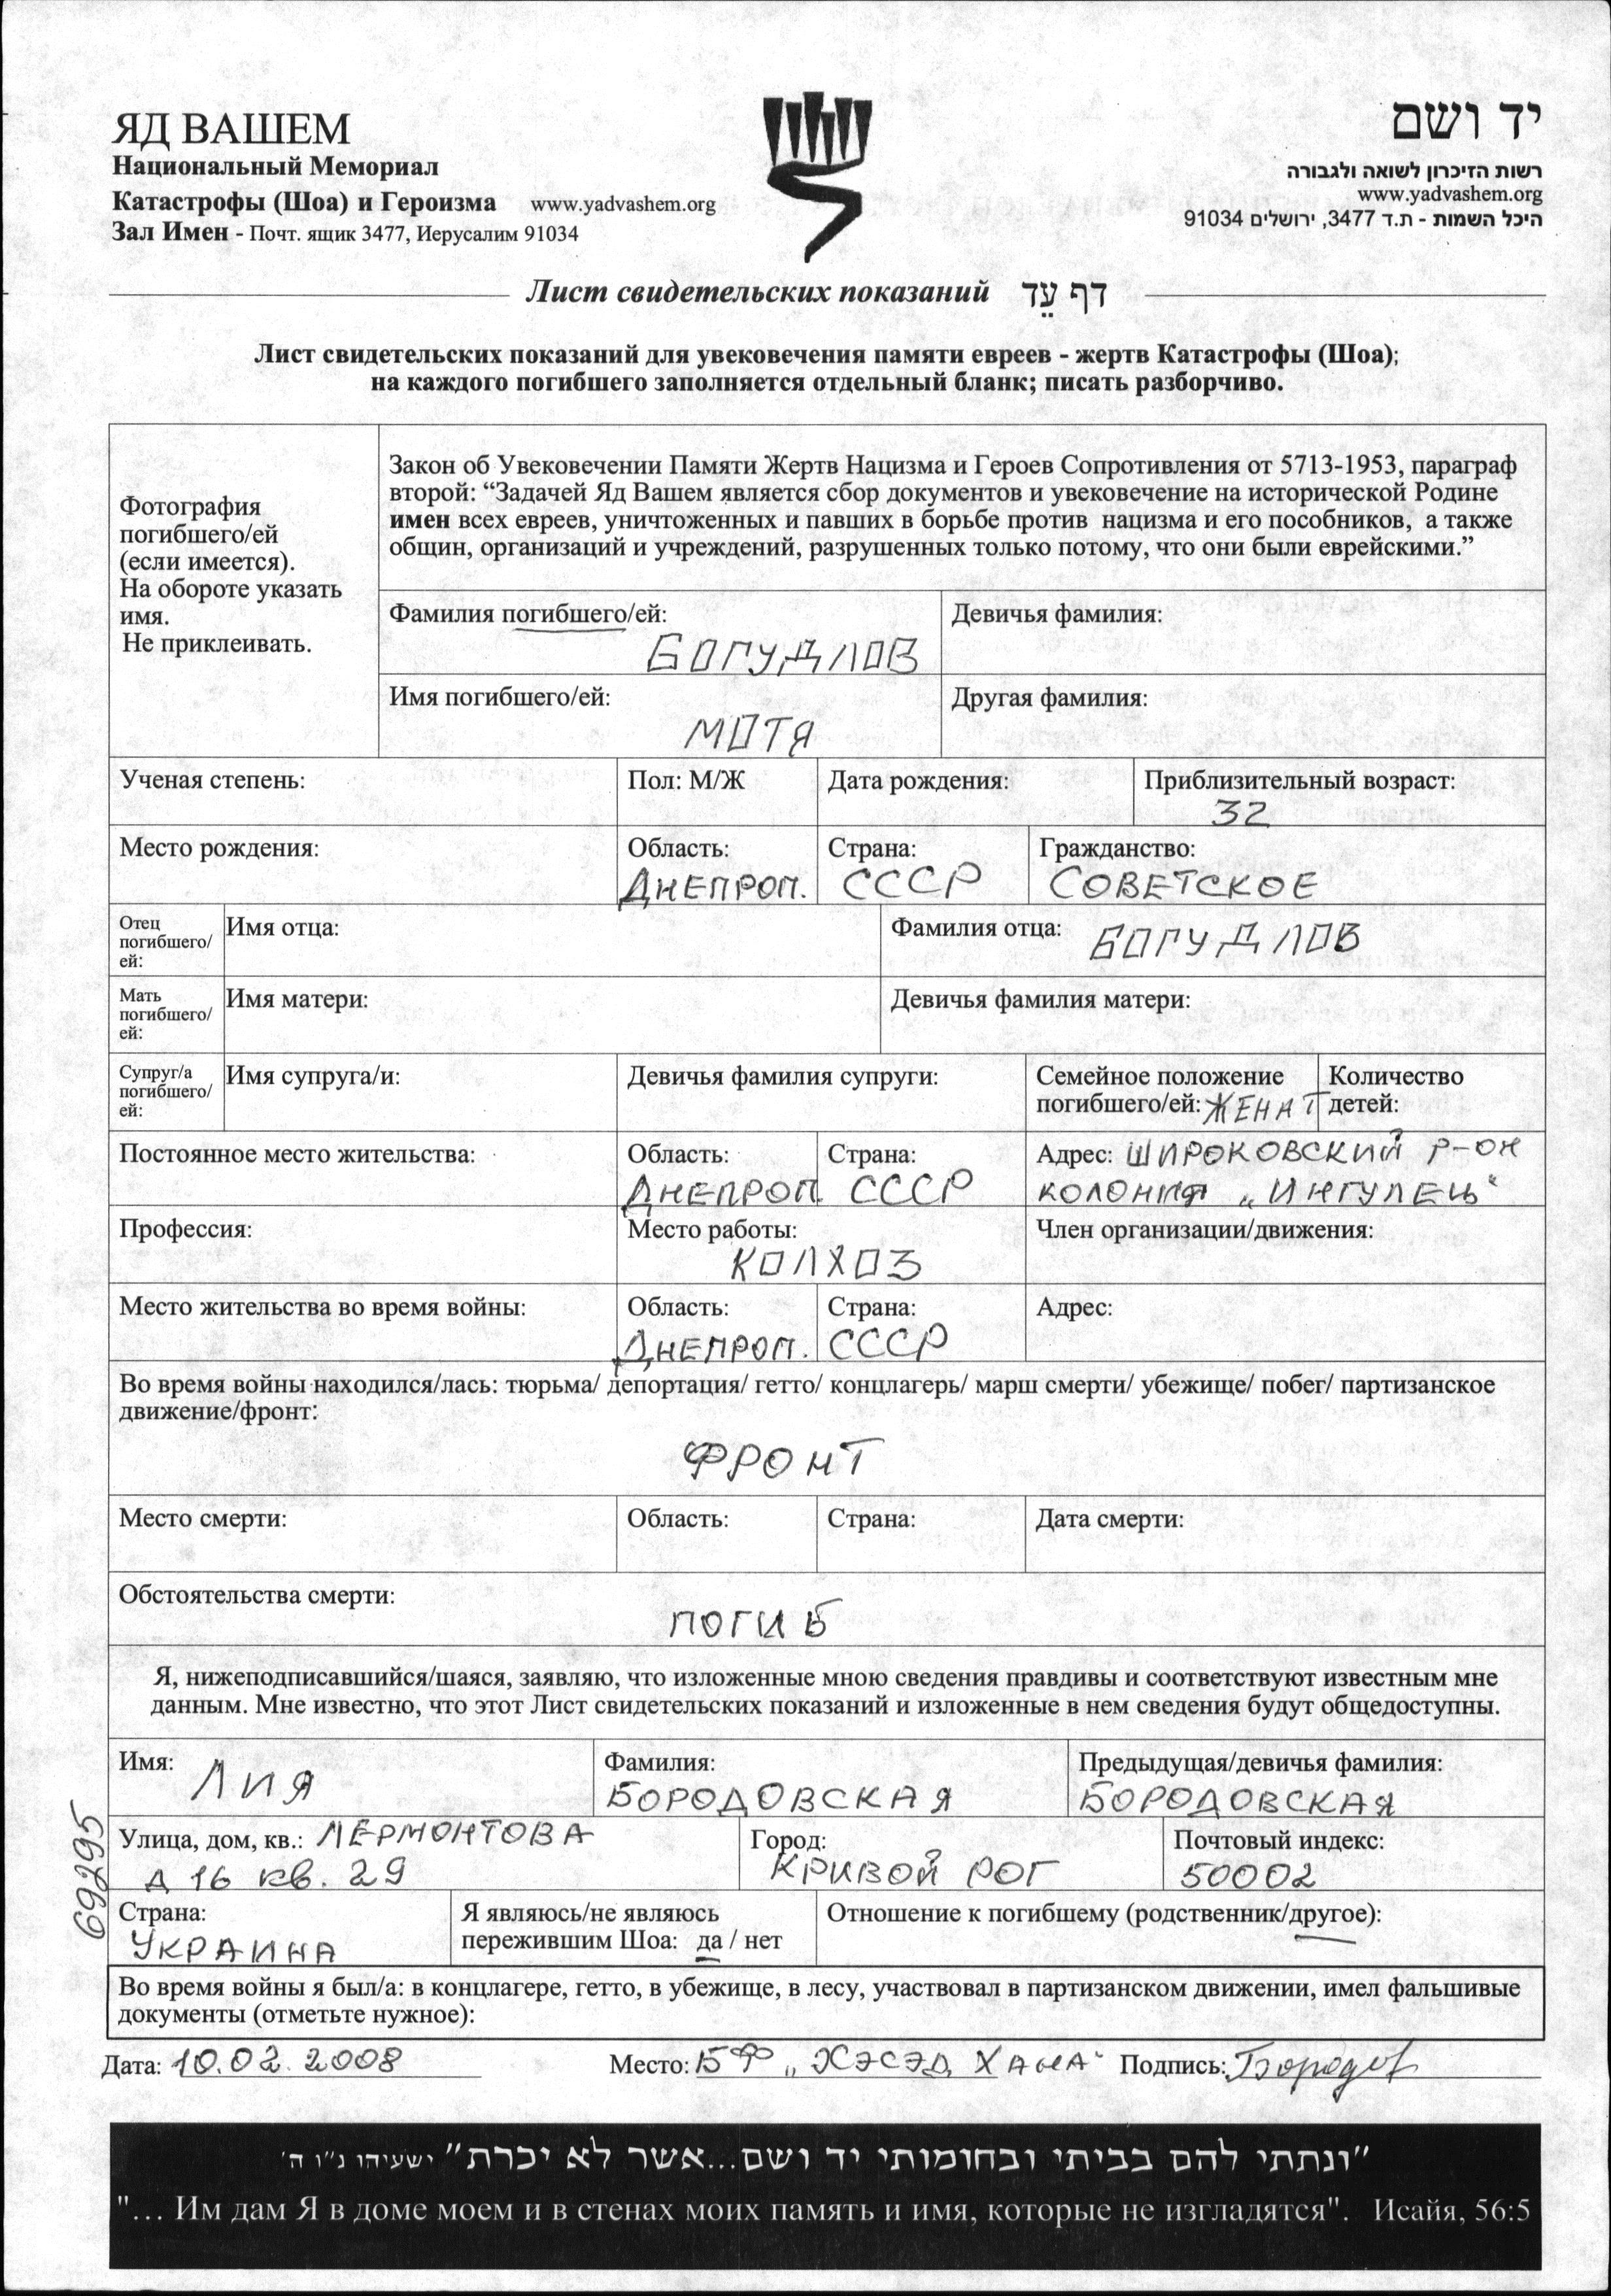 ЯД ВАШЕМ
Национальный Мемориал
Катастрофы (Шоа) и Героизма www.yadvashem.org
Зал Имен - Почт. ящик 3477, Иерусалим 91034
יד ושם
רשות הזיכרון לשואה ולגבורה
www.yadvashem.org
היכל השמות - ת.ד 3477, ירושלים 91034
Лист свидетельских показаний דף עֵד
Лист свидетельских показаний для увековечения памяти евреев - жертв Катастрофы (Шоа);
на каждого погибшего заполняется отдельный бланк; писать разборчиво.
Фотография
погибшего/ей
(если имеется).
На обороте указать
имя.
Не приклеивать.
Закон об Увековечении Памяти Жертв Нацизма и Героев Сопротивления от 5713-1953, параграф
второй: “Задачей Яд Вашем является сбор документов и увековечение на исторической Родине
имен всех евреев, уничтоженных и павших в борьбе против нацизма и его пособников, а также
общин, организаций и учреждений, разрушенных только потому, что они были еврейскими.”
Фамилия погибшего/ей: БОГУДЛОВ
Девичья фамилия:
Имя погибшего/ей: МОТЯ
Другая фамилия:
Ученая степень:
Пол: М/Ж
Дата рождения:
Приблизительный возраст:
32
Место рождения:
Область:
ДНЕПРОП.
Страна:
СССР
Гражданство:
СОВЕТСКОЕ
Отец
погибшего/
ей:
Имя отца:
Фамилия отца: БОГУДЛОВ
Мать
погибшего/
ей:
Имя матери:
Девичья фамилия матери:
Супруг/а
погибшего/
ей:
Имя супруга/и:
Девичья фамилия супруги:
Семейное положение
погибшего/ей: ЖЕНАТ
Количество
детей:
Постоянное место жительства:
Область:
ДНЕПРОП.
Страна:
СССР
Адрес: ШИРОКОВСКИЙ Р-ОН
КОЛОНИЯ „ИНГУЛЕЦ“
Профессия:
Место работы:
КОЛХОЗ
Член организации/движения:
Место жительства во время войны:
Область:
ДНЕПРОП.
Страна:
СССР
Адрес:
Во время войны находился/лась: тюрьма/ депортация/ гетто/ концлагерь/ марш смерти/ убежище/ побег/ партизанское
движение/фронт:
ФРОНТ
Место смерти:
Область:
Страна:
Дата смерти:
Обстоятельства смерти:
ПОГИБ
Я, нижеподписавшийся/шаяся, заявляю, что изложенные мною сведения правдивы и соответствуют известным мне
данным. Мне известно, что этот Лист свидетельских показаний и изложенные в нем сведения будут общедоступны.
Имя: ЛИЯ
Фамилия:
БОРОДОВСКАЯ
Предыдущая/девичья фамилия:
БОРОДОВСКАЯ
Улица, дом, кв.: ЛЕРМОНТОВА
Д 16 КВ. 29
Город:
КРИВОЙ РОГ
Почтовый индекс:
50002
69295
Страна:
УКРАИНА
Я являюсь/не являюсь
пережившим Шоа: да / нет
Отношение к погибшему (родственник/другое):
Во время войны я был/а: в концлагере, гетто, в убежище, в лесу, участвовал в партизанском движении, имел фальшивые
документы (отметьте нужное):
Дата: 10.02.2008 Место: БФ „ХЭСЭД ХАНА“ Подпись: Бородов
"ונתתי להם בביתי ובחומותי יד ושם...אשר לא יכרת" ישעיהו נ"ו ה'
"... Им дам Я в доме моем и в стенах моих память и имя, которые не изгладятся". Исайя, 56:5